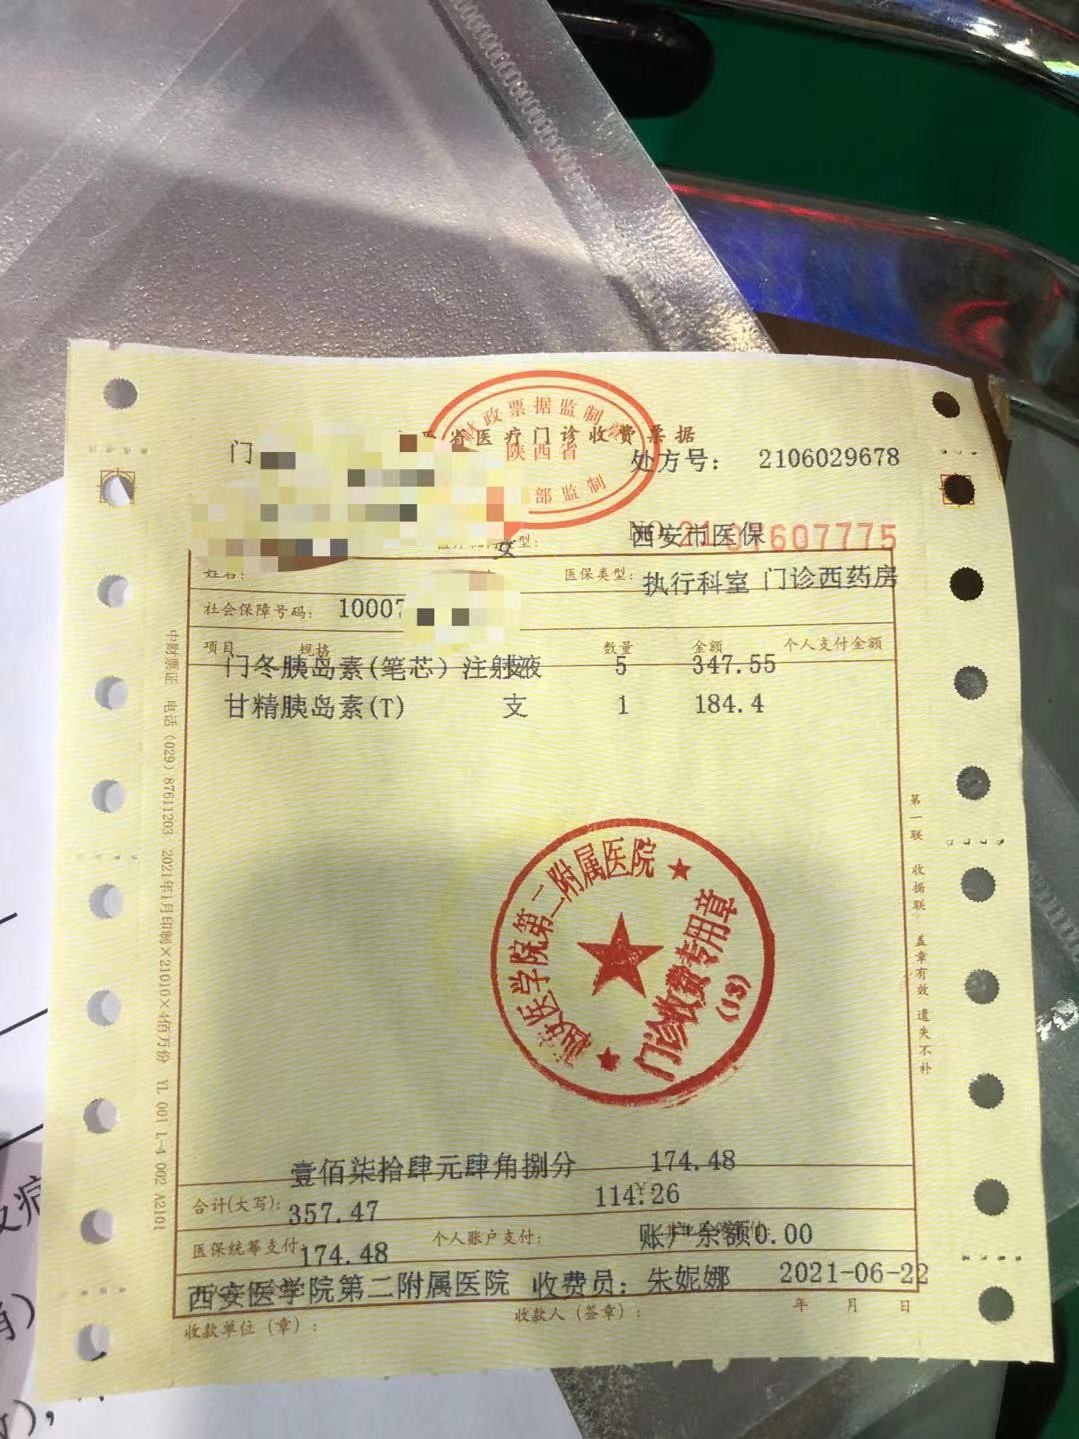 财政票据监制
省医疗门诊收费票据
陕西省
部监制
门
处方号： 2106029678
西安市医保
607775
女
姓名：
医保类型：
执行科室 门诊西药房
社会保障号码： 10007
项目 规格 数量 金额 个人支付金额
门冬胰岛素(笔芯) 注射液 支 5 347.55
甘精胰岛素(T) 支 1 184.4
西安医学院第二附属医院
门诊收费专用章
(13)
第一联 收据联 盖章有效 遗失不补
中财票证 电话(029) 87611203 2021年1月印制×21010×4佰万份 YL 001 L-4 002 A2101
壹佰柒拾肆元肆角捌分 174.48
合计(大写): 357.47 114.26
医保统筹支付: 174.48 个人账户支付: 账户余额0.00
西安医学院第二附属医院 收费员: 朱妮娜 2021-06-22
收款单位（章）: 收款人（签章）: 年 月 日